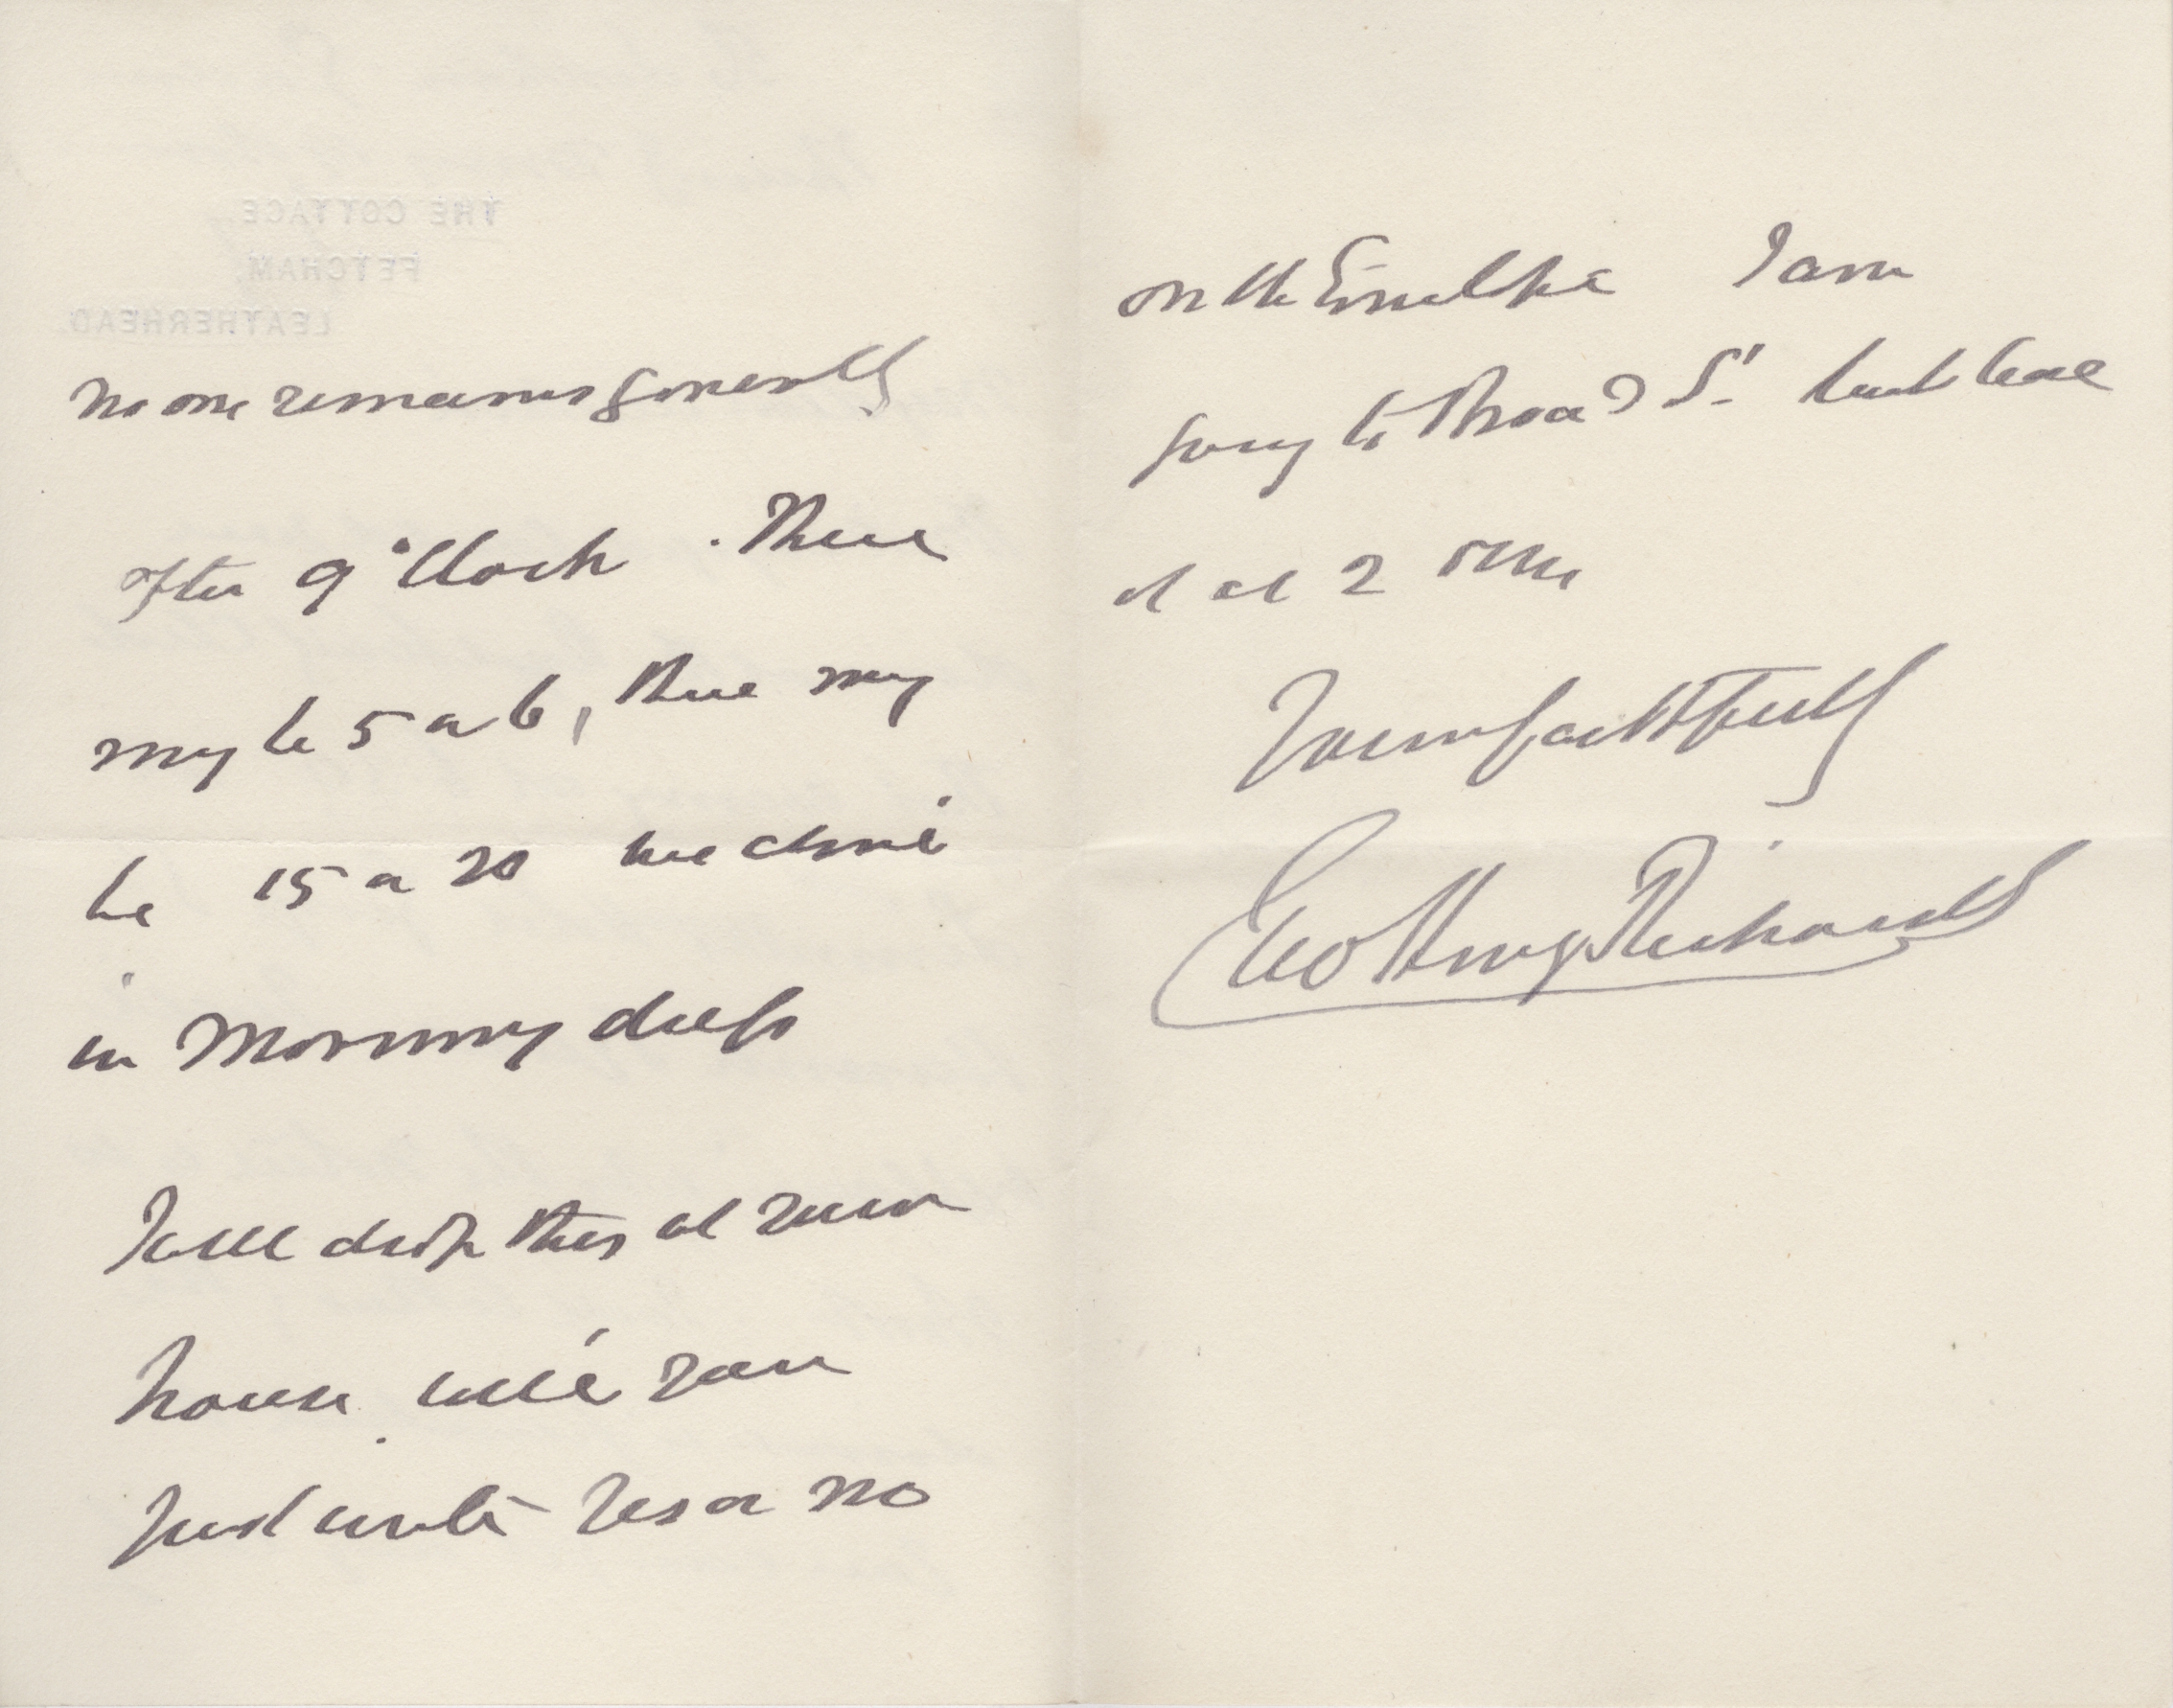 THE COTTAGE,
FETCHAM,
LEATHERHEAD.
no one remains generally
after 9 o'Clock. There
may be 5 or 6, there may
be 15 or 20 we dine
in Morning dress
I will drop this at your
house will you
just write Yes or no
on the Envelope I am
going to Broad St. but leave
it at 2
Yours faithfully
Richards